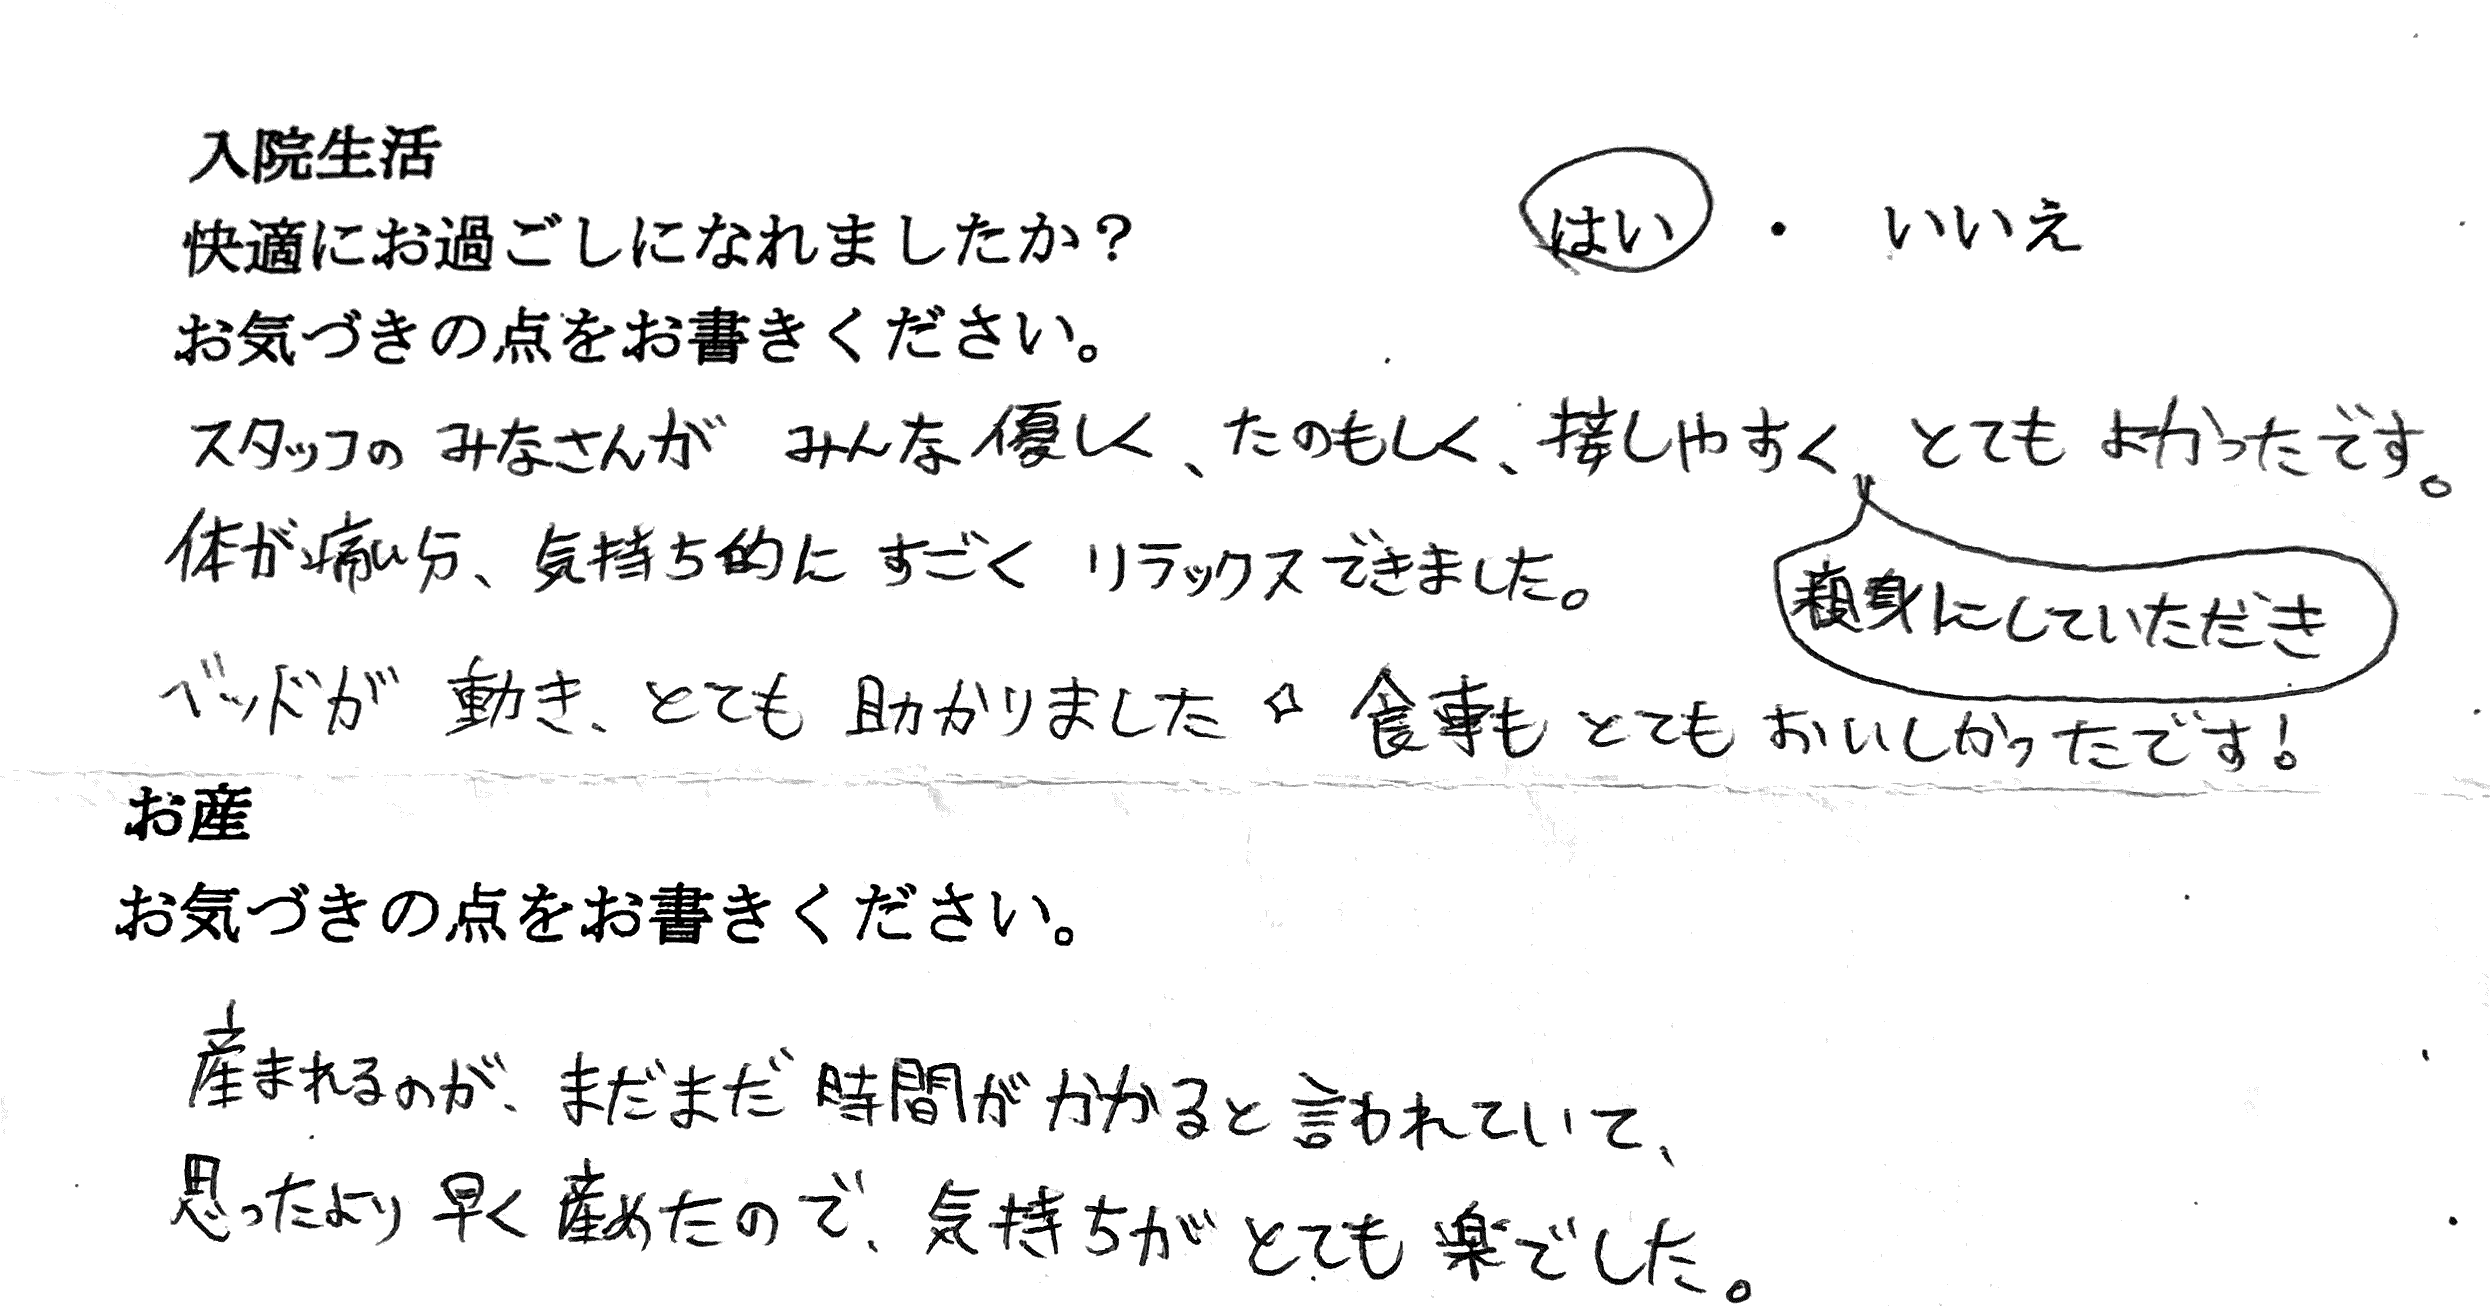 入院生活
快適にお過ごしになれましたか？ はい ・ いいえ
お気づきの点をお書きください。
スタッフの みなさんが みんな優しく、たのもしく、接しやすく、とても よかったです。
体が痛い分、気持ち的に すごく リラックスできました。
親身にしていただき
ベッドが 動き、とても 助かりました☆ 食事も とても おいしかったです！
お産
お気づきの点をお書きください。
産まれるのが、まだまだ 時間がかかると 言われていて、
思ったより 早く 産めたので、気持ちが とても 楽でした。